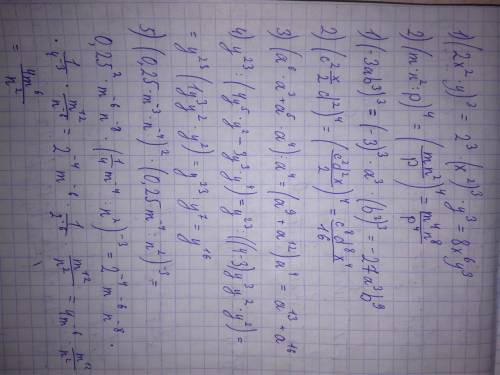 1) (2x²y)³ = 2³ · (x²)³ · y³ = 8x⁶y³
2) (mn² : p)⁴ = (mn²/p)⁴ = m⁴n⁸/p⁴
1) (-3ab³)³ = (-3)³ · a³ · (b³)³ = -27a³b⁹
2) (c²x/2 d²)⁴ = (c²d²x/2)⁴ = c⁸d⁸x⁴/16
3) (a⁶ · a³ + a⁸ · a⁴) · a⁴ = (a⁹ + a¹²)a⁴ = a¹³ + a¹⁶
4) y²³ : (4y⁵ · y² - 3y³ · y⁴) = y²³ : ((4-3)y³y² · y²) =
= y²³ : (1y³y²y²) = y²³ : y⁷ = y¹⁶
5) (0,25 · m⁻³ · n⁻⁴)² · (0,25m⁻⁴ · n²)⁻³ =
0,25² · m⁻⁶ · n⁻⁸ · (1/4 m⁻⁴ · n²)⁻³ = 2⁻⁴ m⁻⁶ n⁻⁸ ·
· 1/4⁻³ · m¹²/n⁶ = 2⁻⁴ · m⁻⁶ · 1/2⁻⁶ · m¹²/n² = 4m⁻⁶ m¹²/n²
= 4m⁶/n²